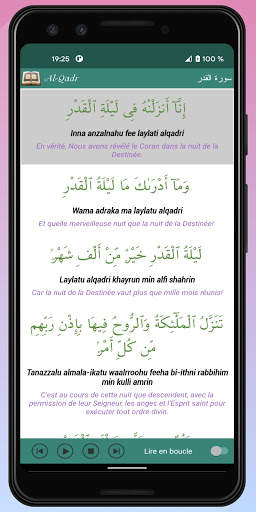 19:25 80%
Al-Qadr سورة القدر
إِنَّآ أَنزَلْنَٰهُ فِى لَيْلَةِ ٱلْقَدْرِ
Inna anzalnahu fee laylati alqadri
En vérité, Nous avons révélé le Coran dans la nuit de la
Destinée.
وَمَآ أَدْرَىٰكَ مَا لَيْلَةُ ٱلْقَدْرِ
Wama adraka ma laylatu alqadri
Et quelle merveilleuse nuit que la nuit de la Destinée!
لَيْلَةُ ٱلْقَدْرِ خَيْرٌ مِّنْ أَلْفِ شَهْرٍ
Laylatu alqadri khayrun min alfi shahrin
Car la nuit de la Destinée vaut plus que mille mois réunis!
تَنَزَّلُ ٱلْمَلَٰٓئِكَةُ وَٱلرُّوحُ فِيهَا بِإِذْنِ رَبِّهِم
مِّن كُلِّ أَمْرٍ
Tanazzalu almala-ikatu waalrroohu feeha bi-ithni rabbihim
min kulli amrin
C'est au cours de cette nuit que descendent, avec la
permission de leur Seigneur, les anges et l'Esprit saint pour
exécuter tout ordre divin.
Lire en boucle